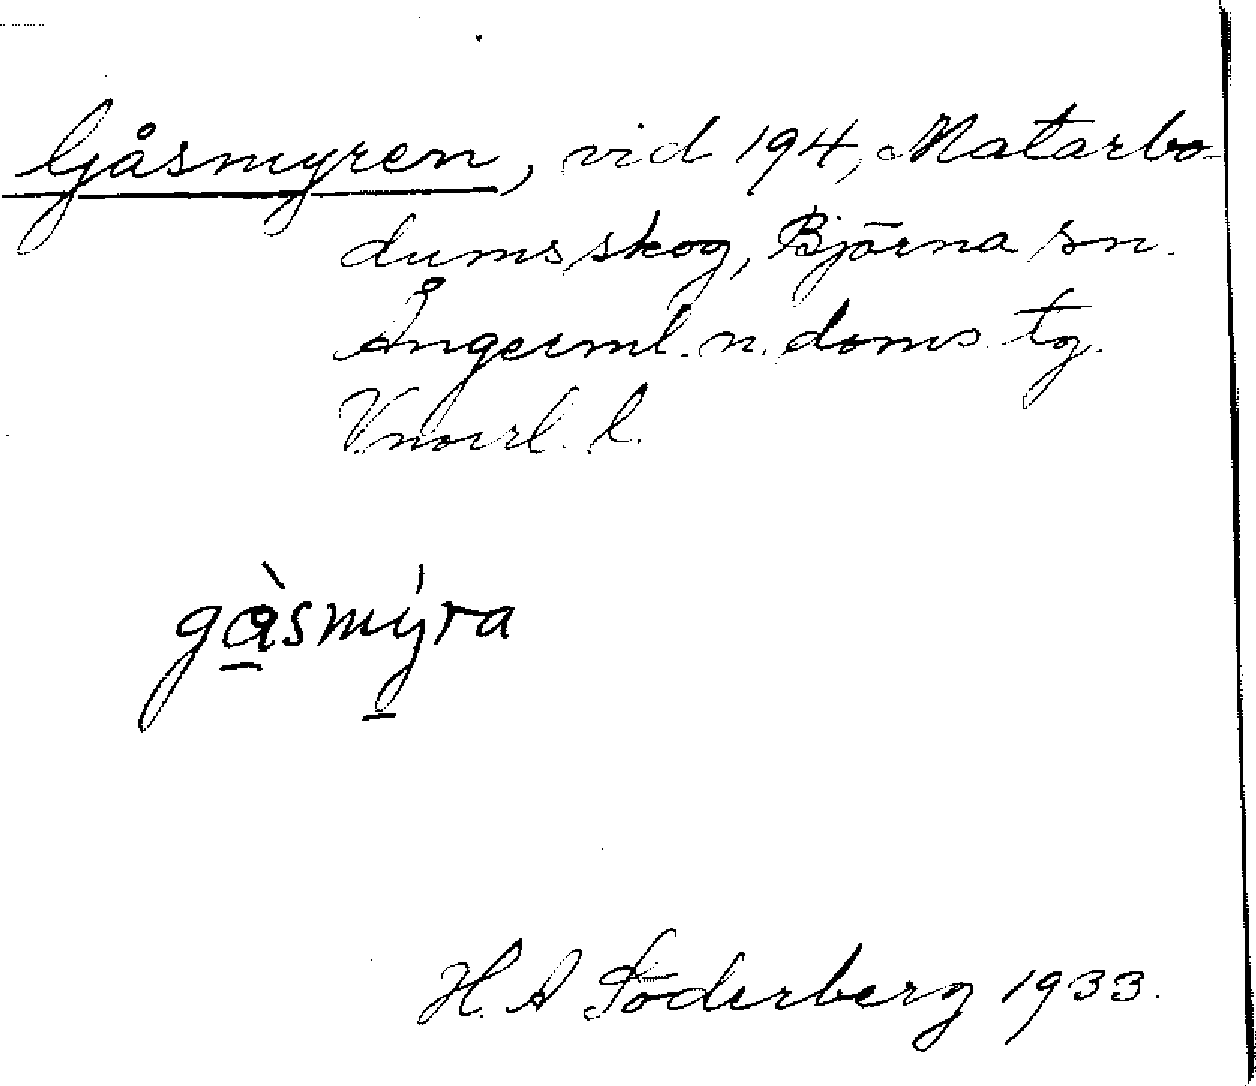 Gåsmyren, vid 194, Matarbo-
dums skog, Björna sn.
Ångerml. n. doms. tg.
Vnorrl. l.
gàsmýra
H. A Söderberg 1933.